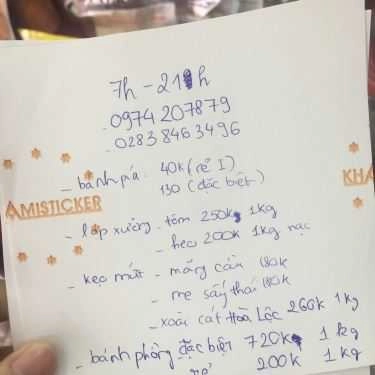 7h - 21h
0974 207879
02838463496
- bánh pía: 40k (rẻ I)
130 (đặc biệt)
AMISTICKER
KHA
- lạp xưởng - tôm 250k 1kg
- heo 200k 1kg nạc
- kẹo mứt - mãng cầu 180k
- me sấy thái 180k
- xoài cát Hoà Lộc 260k 1kg
- bánh phồng đặc biệt 720k 1kg
200k 1kg